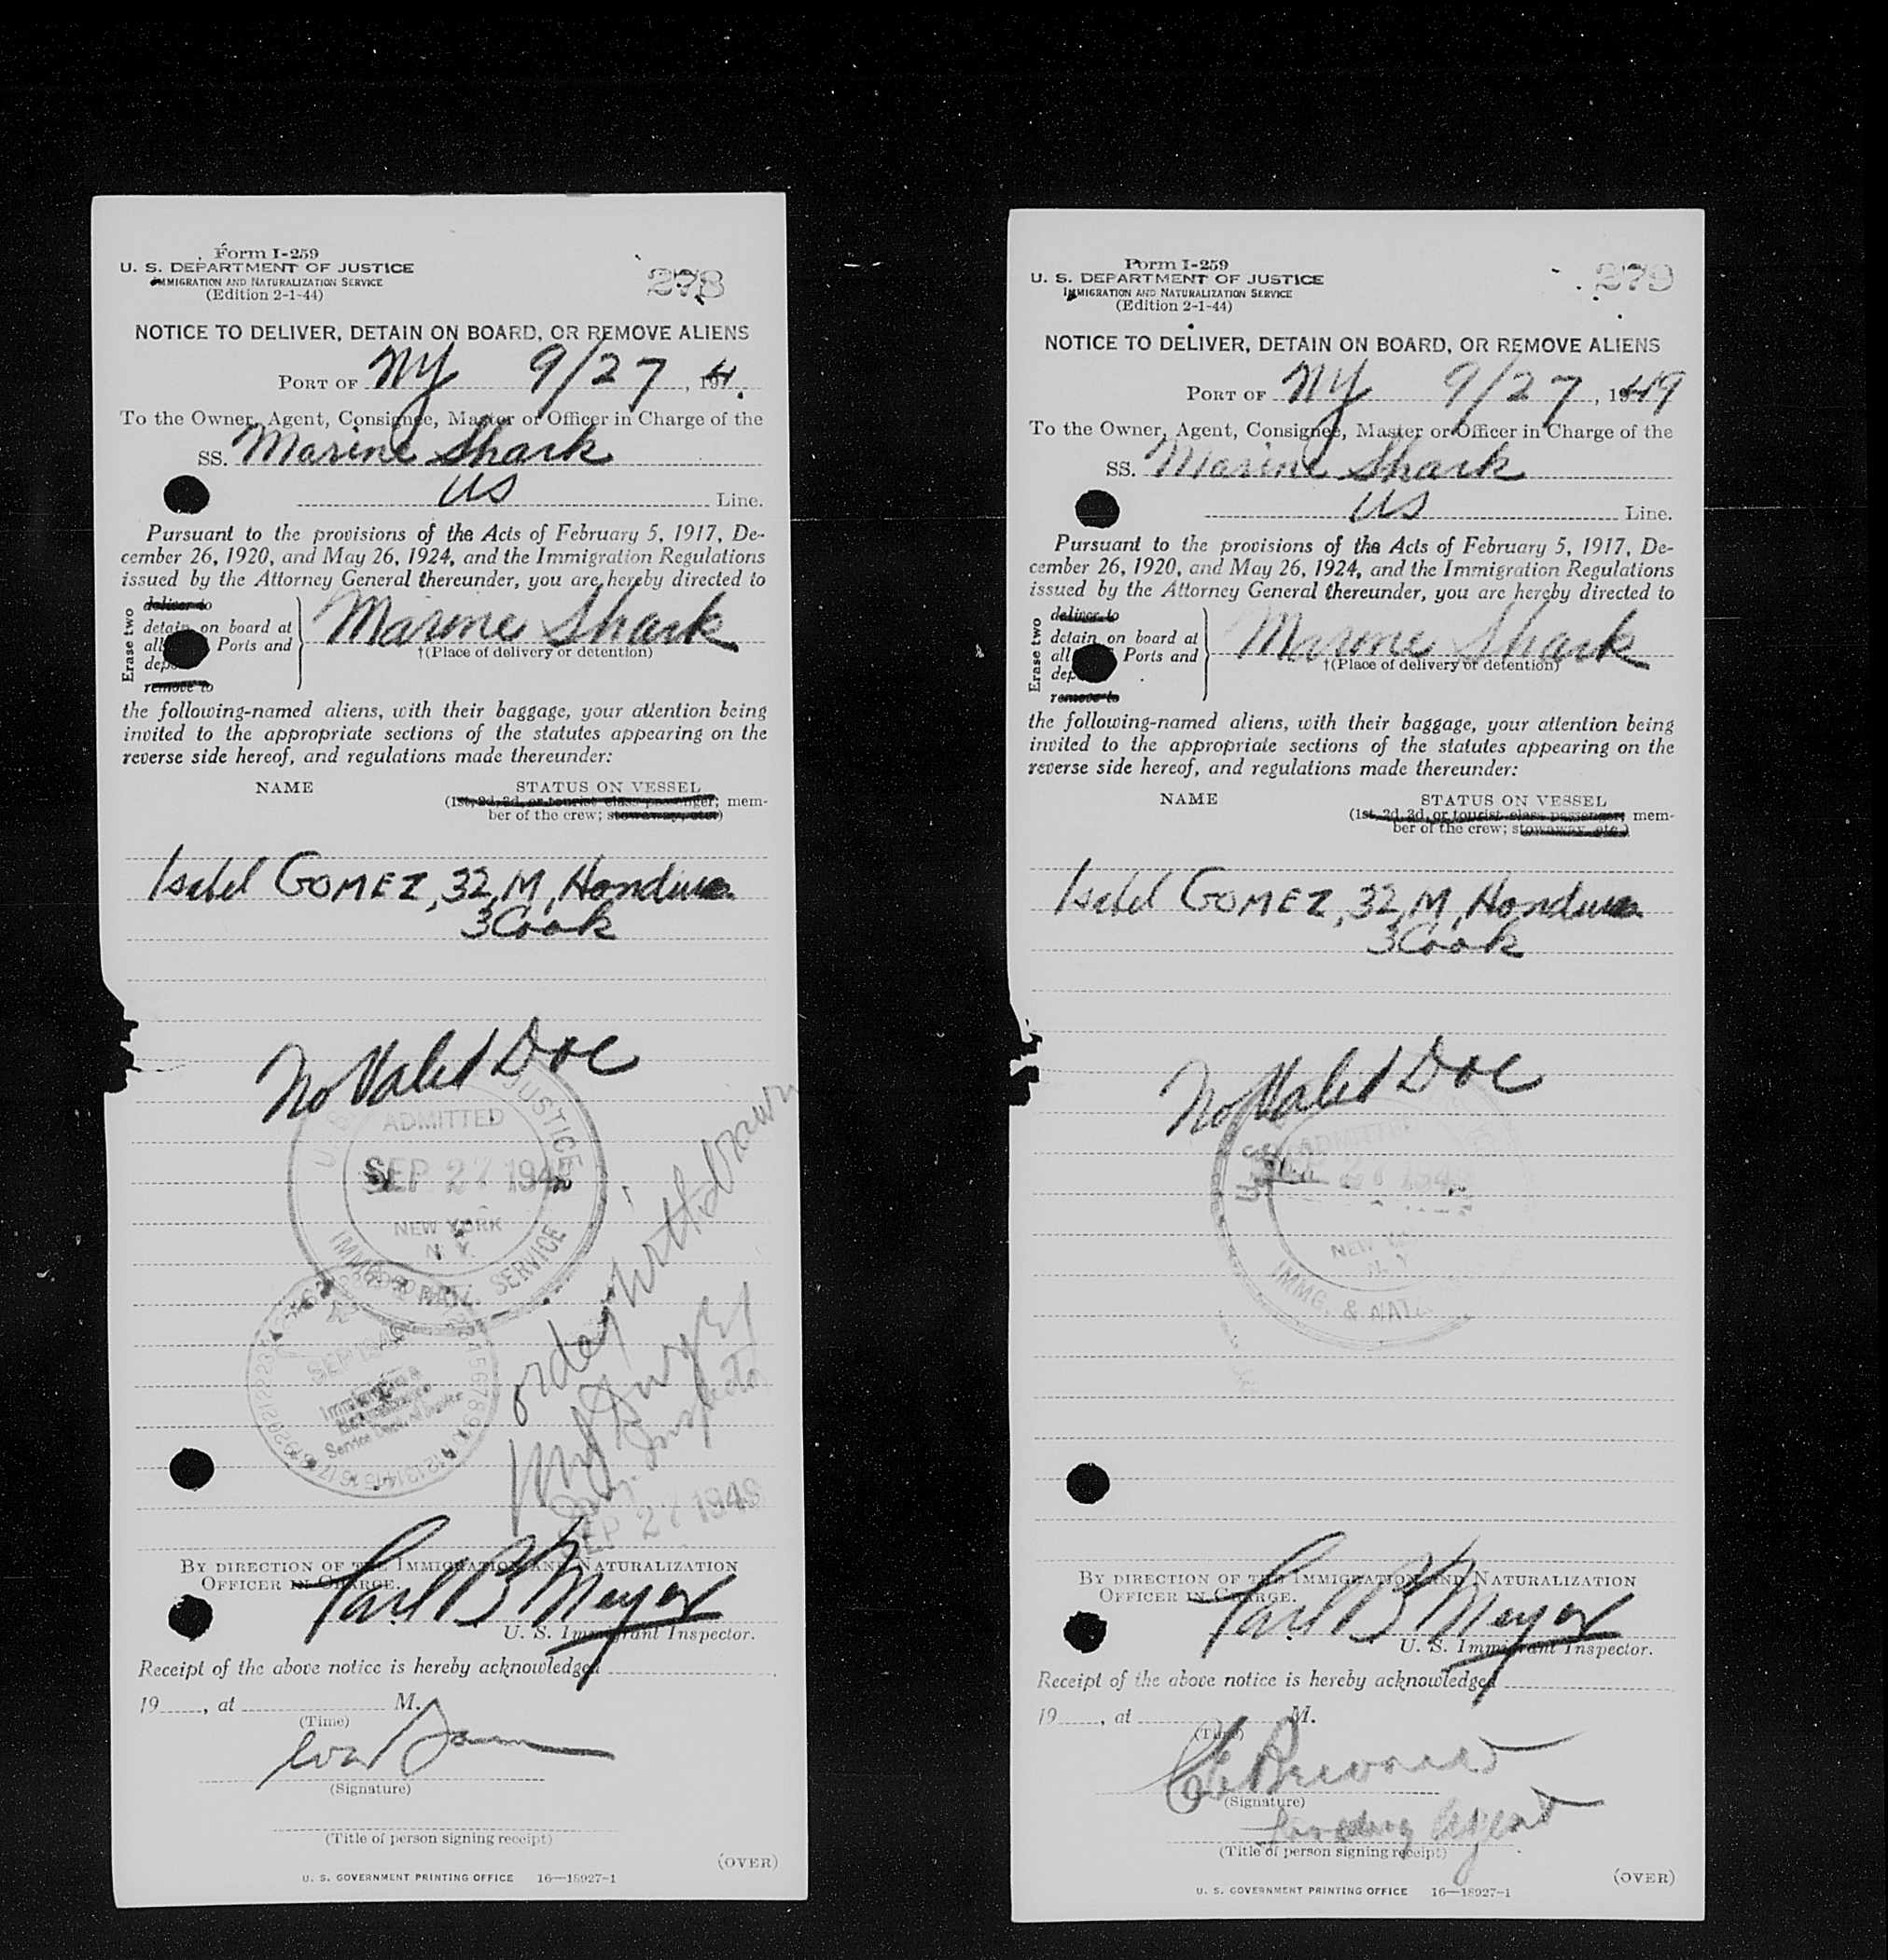 Form I-259
U. S. DEPARTMENT OF JUSTICE
IMMIGRATION AND NATURALIZATION SERVICE
(Edition 2-1-44)
278
NOTICE TO DELIVER, DETAIN ON BOARD, OR REMOVE ALIENS
PORT OF NY 9/27, 194
To the Owner, Agent, Consignee, Master or Officer in Charge of the
SS. Marine Shark
US Line.
Pursuant to the provisions of the Acts of February 5, 1917, De-
cember 26, 1920, and May 26, 1924, and the Immigration Regulations
issued by the Attorney General thereunder, you are hereby directed to
Erase two
deliver to
detain on board at
all Ports and
dep
remove to
Marine Shark
†(Place of delivery or detention)
the following-named aliens, with their baggage, your attention being
invited to the appropriate sections of the statutes appearing on the
reverse side hereof, and regulations made thereunder:
NAME STATUS ON VESSEL
(1st, 2d, 3d, or tourist class passenger; mem-
ber of the crew; stowaway, etc.)
Isabel GOMEZ, 32, M, Honduras
3 Cook
No Valid Doc
ADMITTED
SEP 27 194
NEW YORK
N. Y.
JUSTICE
IMMG. & NATZ. SERVICE
order withdrawn
Inspector
SEP 27 1948
BY DIRECTION OF THE IMMIGRATION AND NATURALIZATION
OFFICER IN CHARGE.
Carl B Meyer
U. S. Immigrant Inspector.
Receipt of the above notice is hereby acknowledged
19 , at M.
(Time)
(Signature)
(Title of person signing receipt)
(OVER)
U. S. GOVERNMENT PRINTING OFFICE 16—18927-1
Form I-259
U. S. DEPARTMENT OF JUSTICE
IMMIGRATION AND NATURALIZATION SERVICE
(Edition 2-1-44)
279
NOTICE TO DELIVER, DETAIN ON BOARD, OR REMOVE ALIENS
PORT OF NY 9/27, 1949
To the Owner, Agent, Consignee, Master or Officer in Charge of the
SS. Marine Shark
US Line.
Pursuant to the provisions of the Acts of February 5, 1917, De-
cember 26, 1920, and May 26, 1924, and the Immigration Regulations
issued by the Attorney General thereunder, you are hereby directed to
Erase two
deliver to
detain on board at
all Ports and
dep
remove to
Marine Shark
†(Place of delivery or detention)
the following-named aliens, with their baggage, your attention being
invited to the appropriate sections of the statutes appearing on the
reverse side hereof, and regulations made thereunder:
NAME STATUS ON VESSEL
(1st, 2d, 3d, or tourist class passenger; mem-
ber of the crew; stowaway, etc.)
Isabel GOMEZ, 32, M, Honduras
3 Cook
No Valid Doc
ADMITTED
194
NEW
N. Y
IMMG. & NAT
BY DIRECTION OF THE IMMIGRATION AND NATURALIZATION
OFFICER IN CHARGE.
Carl B Meyer
U. S. Immigrant Inspector.
Receipt of the above notice is hereby acknowledged
19 , at M.
(Time)
(Signature)
Agent
(Title of person signing receipt)
(OVER)
U. S. GOVERNMENT PRINTING OFFICE 16—18927-1